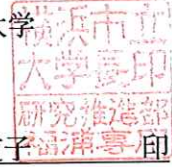 大学
横浜市立
大学
印
研究推進部
福浦専用
子 印